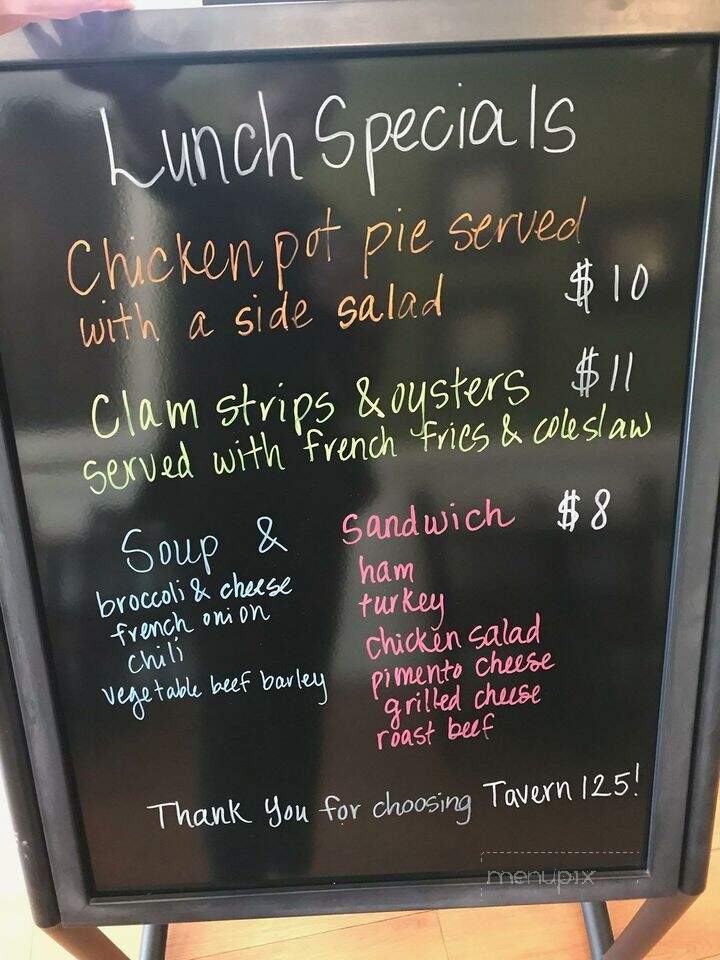 Lunch Specials
Chicken pot pie served
with a side salad $10
Clam strips & oysters $11
served with french fries & coleslaw
Soup & Sandwich $8
broccoli & cheese
french onion
chili
vegetable beef barley
ham
turkey
chicken salad
pimento cheese
grilled cheese
roast beef
Thank you for choosing Tavern 125!
menupix